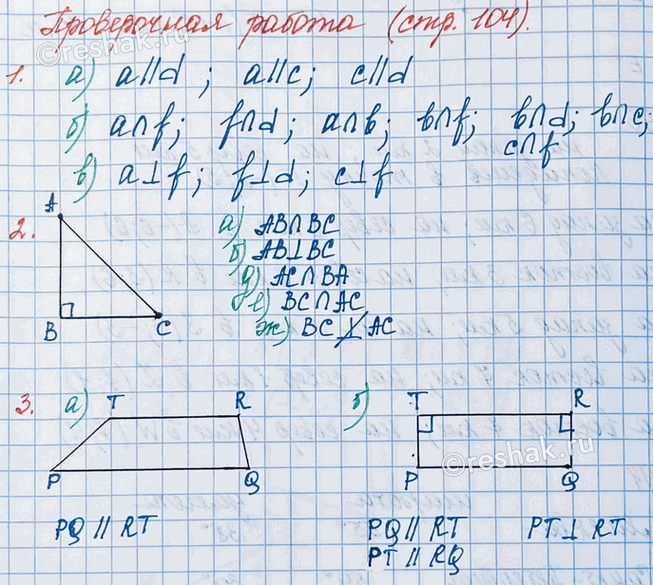 Проверочная работа (стр. 104).
1. а) a∥d; a∥c; c∥d
б) a∩f; f∩d; a∩b; b∩f; b∩d; b∩c;
c∩f
в) a⊥f; f⊥d; c⊥f
2. A B C
а) AB∩BC
б) AB⊥BC
д) AC∩BA
е) BC∩AC
ж) BC ⊥̸ AC
3. а) T R P Q
б) T R P Q
PQ ∥ RT
PQ ∥ RT PT ⊥ RT
PT ∥ RQ
reshak.ru
reshak.ru